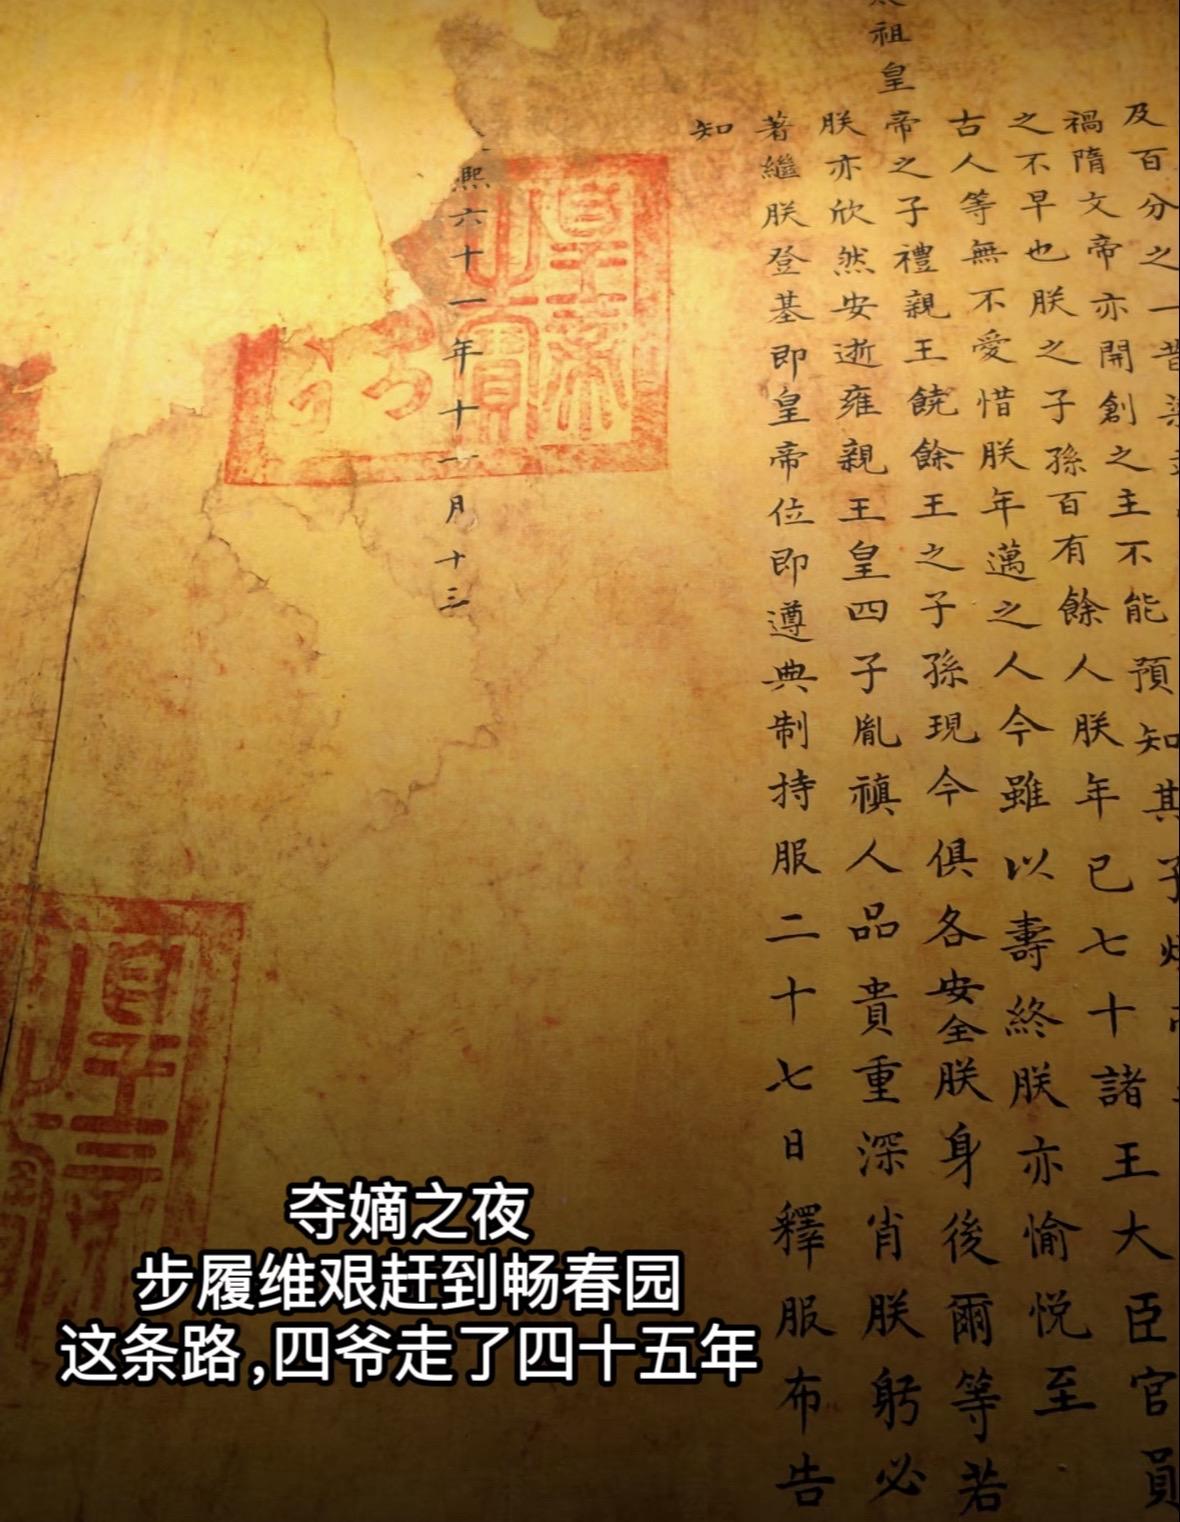 及百分之一昔梁
禍隋文帝亦開創之主不能預知其子煬
之不早也朕之子孫百有餘人朕年已七十諸王大臣官員
古人等無不愛惜朕年邁之人今雖以壽終朕亦愉悅至
祖皇帝之子禮親王饒餘王之子孫現今俱各安全朕身後爾等若
朕亦欣然安逝雍親王皇四子胤禛人品貴重深肖朕躬必
著繼朕登基即皇帝位即遵典制持服二十七日釋服布告
知
熙六十一年十一月十三
皇帝
之寶
夺嫡之夜
步履维艰赶到畅春园
这条路,四爷走了四十五年